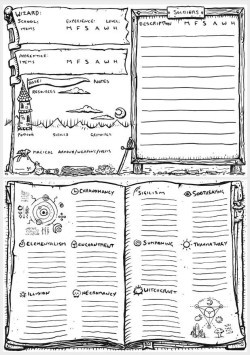 WIZARD:
SCHOOL: EXPERIENCE: LEVEL:
ITEMS M F S A W H
APPRENTICE:
ITEMS M F S A W H
BASE: NOTES
RESOURCES
POTIONS SCROLLS GRIMOIRES
MAGICAL ARMOUR/WEAPONS/ITEMS
SOLDIERS
DESCRIPTION M F S A W H
CHRONOMANCY
ELEMENTALISM ENCHANTMENT
ILLUSION NECROMANCY
SIGILISM SOOTHSAYING
SUMMONING THAUMATURGY
WITCHCRAFT